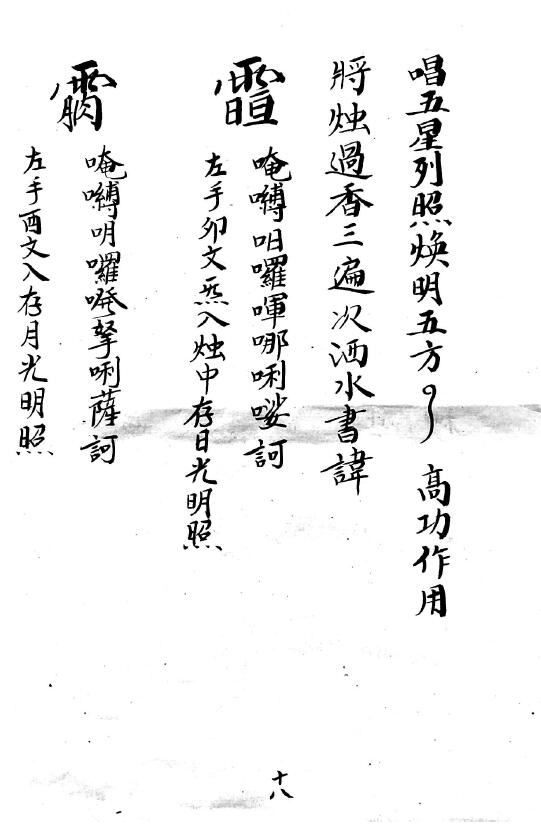 唱五星列照煥明五方 高功作用
將烛過香三遍次洒水書諱
唵𡄦呬囉喗哪唎娑訶
左手卯文炁入烛中存日光明照
唵𡄦呬囉㗶拏唎薩訶
左手酉文入存月光明照
十八